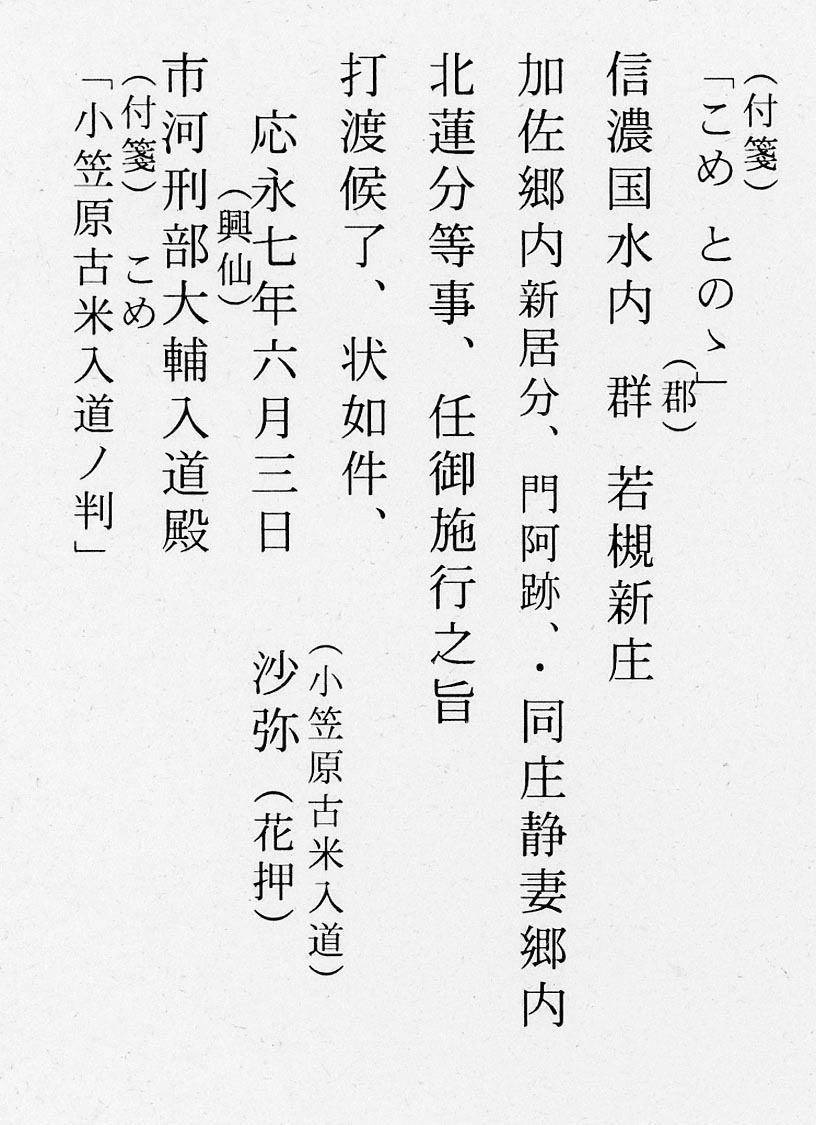 （付箋）
「こめ とのゝ」
（郡）
信濃国水内 群 若槻新庄
加佐郷内新居分、門阿跡、・同庄静妻郷内
北蓮分等事、任御施行之旨
打渡候了、状如件、
（小笠原古米入道）
応永七年六月三日 沙弥（花押）
（興仙）
市河刑部大輔入道殿
（付箋） こめ
「小笠原古米入道ノ判」